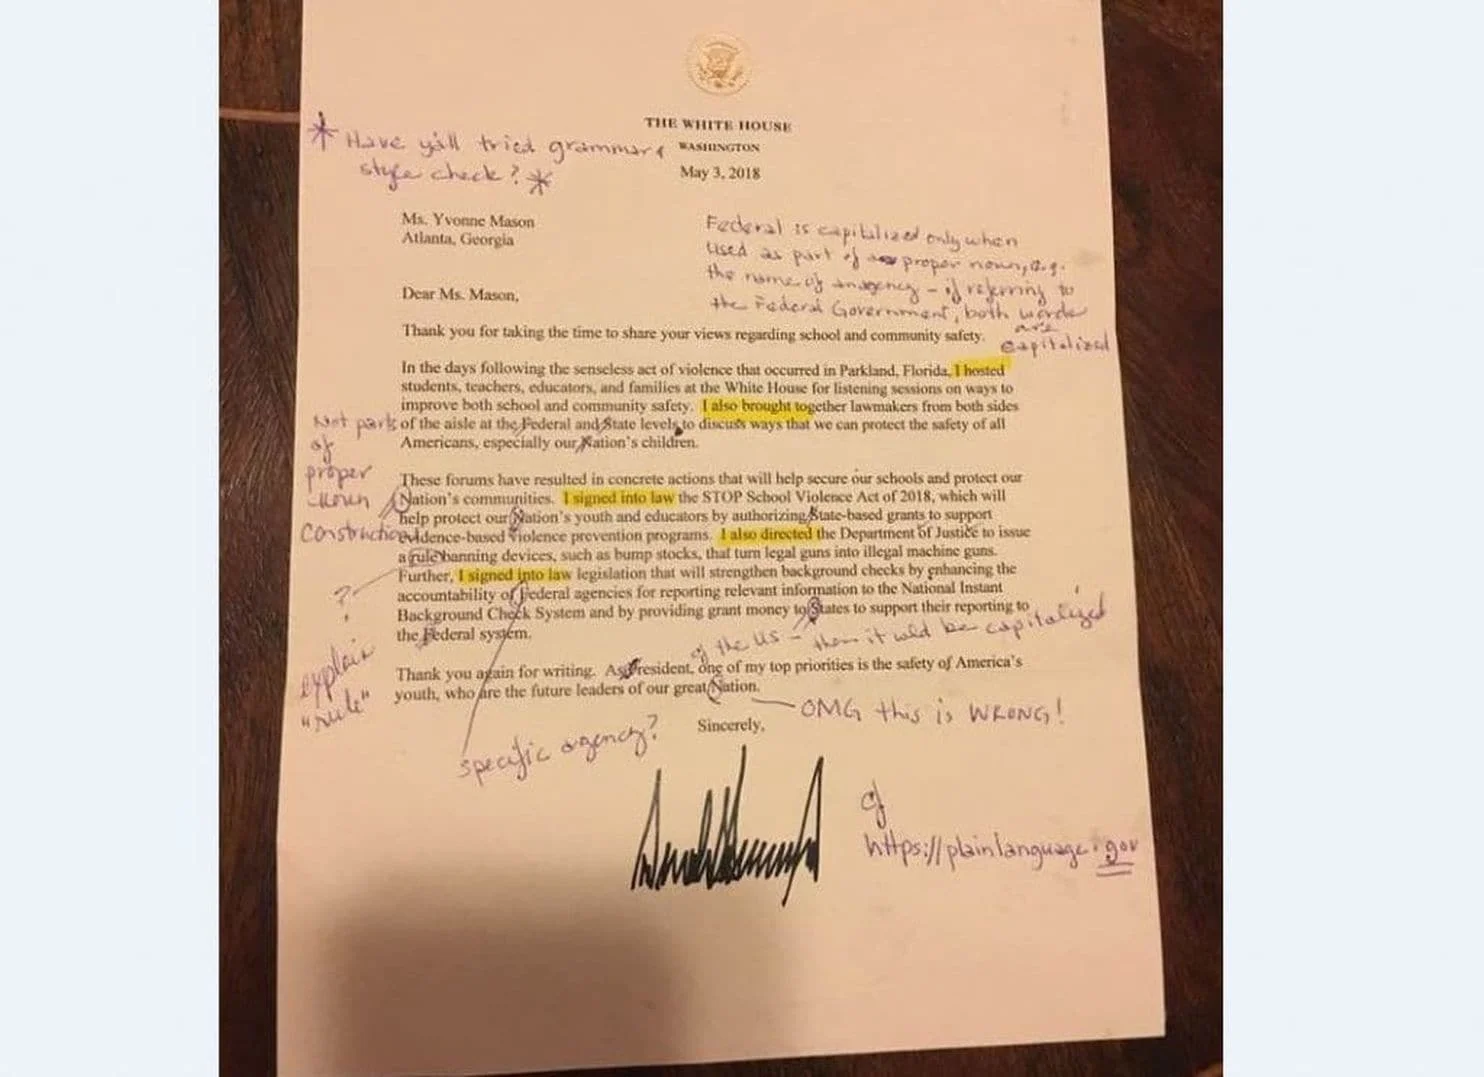 THE WHITE HOUSE
WASHINGTON
May 3, 2018
* Have y'all tried grammar &
style check? *
Ms. Yvonne Mason
Atlanta, Georgia
Federal is capitalized only when
used as part of proper noun, e.g.
the name of an agency - if referring to
the Federal Government, both words
are
capitalized
Dear Ms. Mason,
Thank you for taking the time to share your views regarding school and community safety.
In the days following the senseless act of violence that occurred in Parkland, Florida, I hosted
students, teachers, educators, and families at the White House for listening sessions on ways to
improve both school and community safety. I also brought together lawmakers from both sides
of the aisle at the Federal and State levels to discuss ways that we can protect the safety of all
Americans, especially our Nation's children.
Not parts
of
proper
noun
construction
These forums have resulted in concrete actions that will help secure our schools and protect our
Nation's communities. I signed into law the STOP School Violence Act of 2018, which will
help protect our Nation's youth and educators by authorizing State-based grants to support
evidence-based violence prevention programs. I also directed the Department of Justice to issue
a rule banning devices, such as bump stocks, that turn legal guns into illegal machine guns.
Further, I signed into law legislation that will strengthen background checks by enhancing the
accountability of Federal agencies for reporting relevant information to the National Instant
Background Check System and by providing grant money to States to support their reporting to
the Federal system.
?
explain
"rule"
of the US - then it wld be capitalized
Thank you again for writing. As President, one of my top priorities is the safety of America's
youth, who are the future leaders of our great Nation.
OMG this is WRONG!
Sincerely,
specific agency?
cf
https://plainlanguage.gov